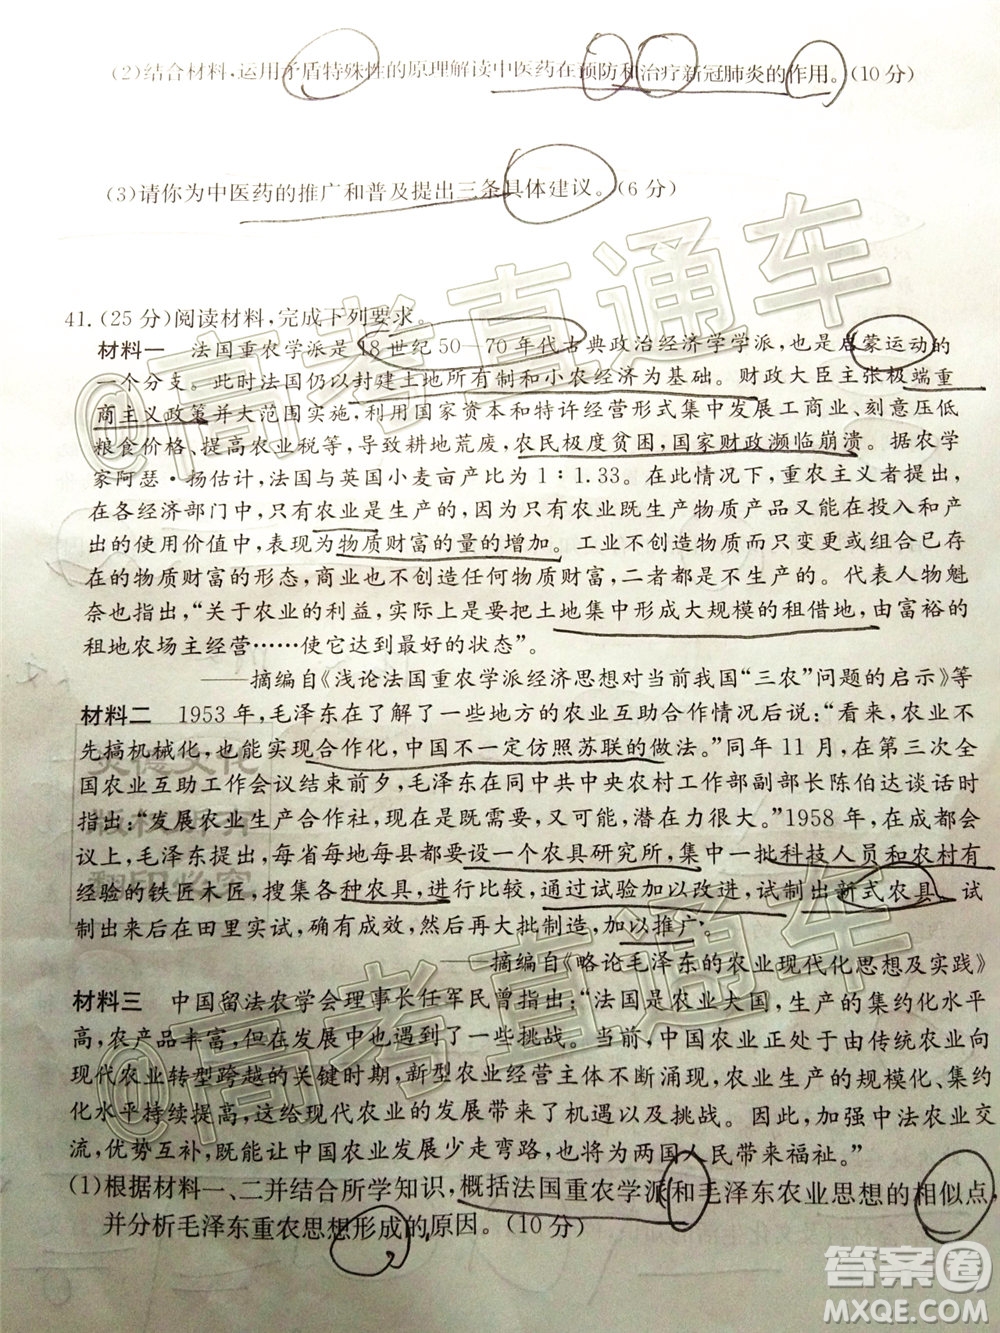 (2)结合材料,运用矛盾特殊性的原理解读中医药在预防和治疗新冠肺炎的作用。(10分)
(3)请你为中医药的推广和普及提出三条具体建议。(6分)
41.(25分)阅读材料,完成下列要求。
材料一 法国重农学派是18世纪50—70年代古典政治经济学学派,也是启蒙运动的
一个分支。此时法国仍以封建土地所有制和小农经济为基础。财政大臣主张极端重
商主义政策并大范围实施,利用国家资本和特许经营形式集中发展工商业、刻意压低
粮食价格、提高农业税等,导致耕地荒废,农民极度贫困,国家财政濒临崩溃。据农学
家阿瑟·扬估计,法国与英国小麦亩产比为1:1.33。在此情况下,重农主义者提出,
在各经济部门中,只有农业是生产的,因为只有农业既生产物质产品又能在投入和产
出的使用价值中,表现为物质财富的量的增加。工业不创造物质而只变更或组合已存
在的物质财富的形态,商业也不创造任何物质财富,二者都是不生产的。代表人物魁
奈也指出,“关于农业的利益,实际上是要把土地集中形成大规模的租借地,由富裕的
租地农场主经营……使它达到最好的状态”。
——摘编自《浅论法国重农学派经济思想对当前我国“三农”问题的启示》等
材料二 1953年,毛泽东在了解了一些地方的农业互助合作情况后说:“看来,农业不
先搞机械化,也能实现合作化,中国不一定仿照苏联的做法。”同年11月,在第三次全
国农业互助工作会议结束前夕,毛泽东在同中共中央农村工作部副部长陈伯达谈话时
指出:“发展农业生产合作社,现在是既需要,又可能,潜在力很大。”1958年,在成都会
议上,毛泽东提出,每省每地每县都要设一个农具研究所,集中一批科技人员和农村有
经验的铁匠木匠,搜集各种农具,进行比较,通过试验加以改进,试制出新式农具。试
制出来后在田里实试,确有成效,然后再大批制造,加以推广。
——摘编自《略论毛泽东的农业现代化思想及实践》
材料三 中国留法农学会理事长任军民曾指出:“法国是农业大国,生产的集约化水平
高,农产品丰富,但在发展中也遇到了一些挑战。当前,中国农业正处于由传统农业向
现代农业转型跨越的关键时期,新型农业经营主体不断涌现,农业生产的规模化、集约
化水平持续提高,这给现代农业的发展带来了机遇以及挑战。因此,加强中法农业交
流,优势互补,既能让中国农业发展少走弯路,也将为两国人民带来福祉。”
(1)根据材料一、二并结合所学知识,概括法国重农学派和毛泽东农业思想的相似点,
并分析毛泽东重农思想形成的原因。(10分)
@高考直通车
@高考直通车
答案圈
MXQE.COM